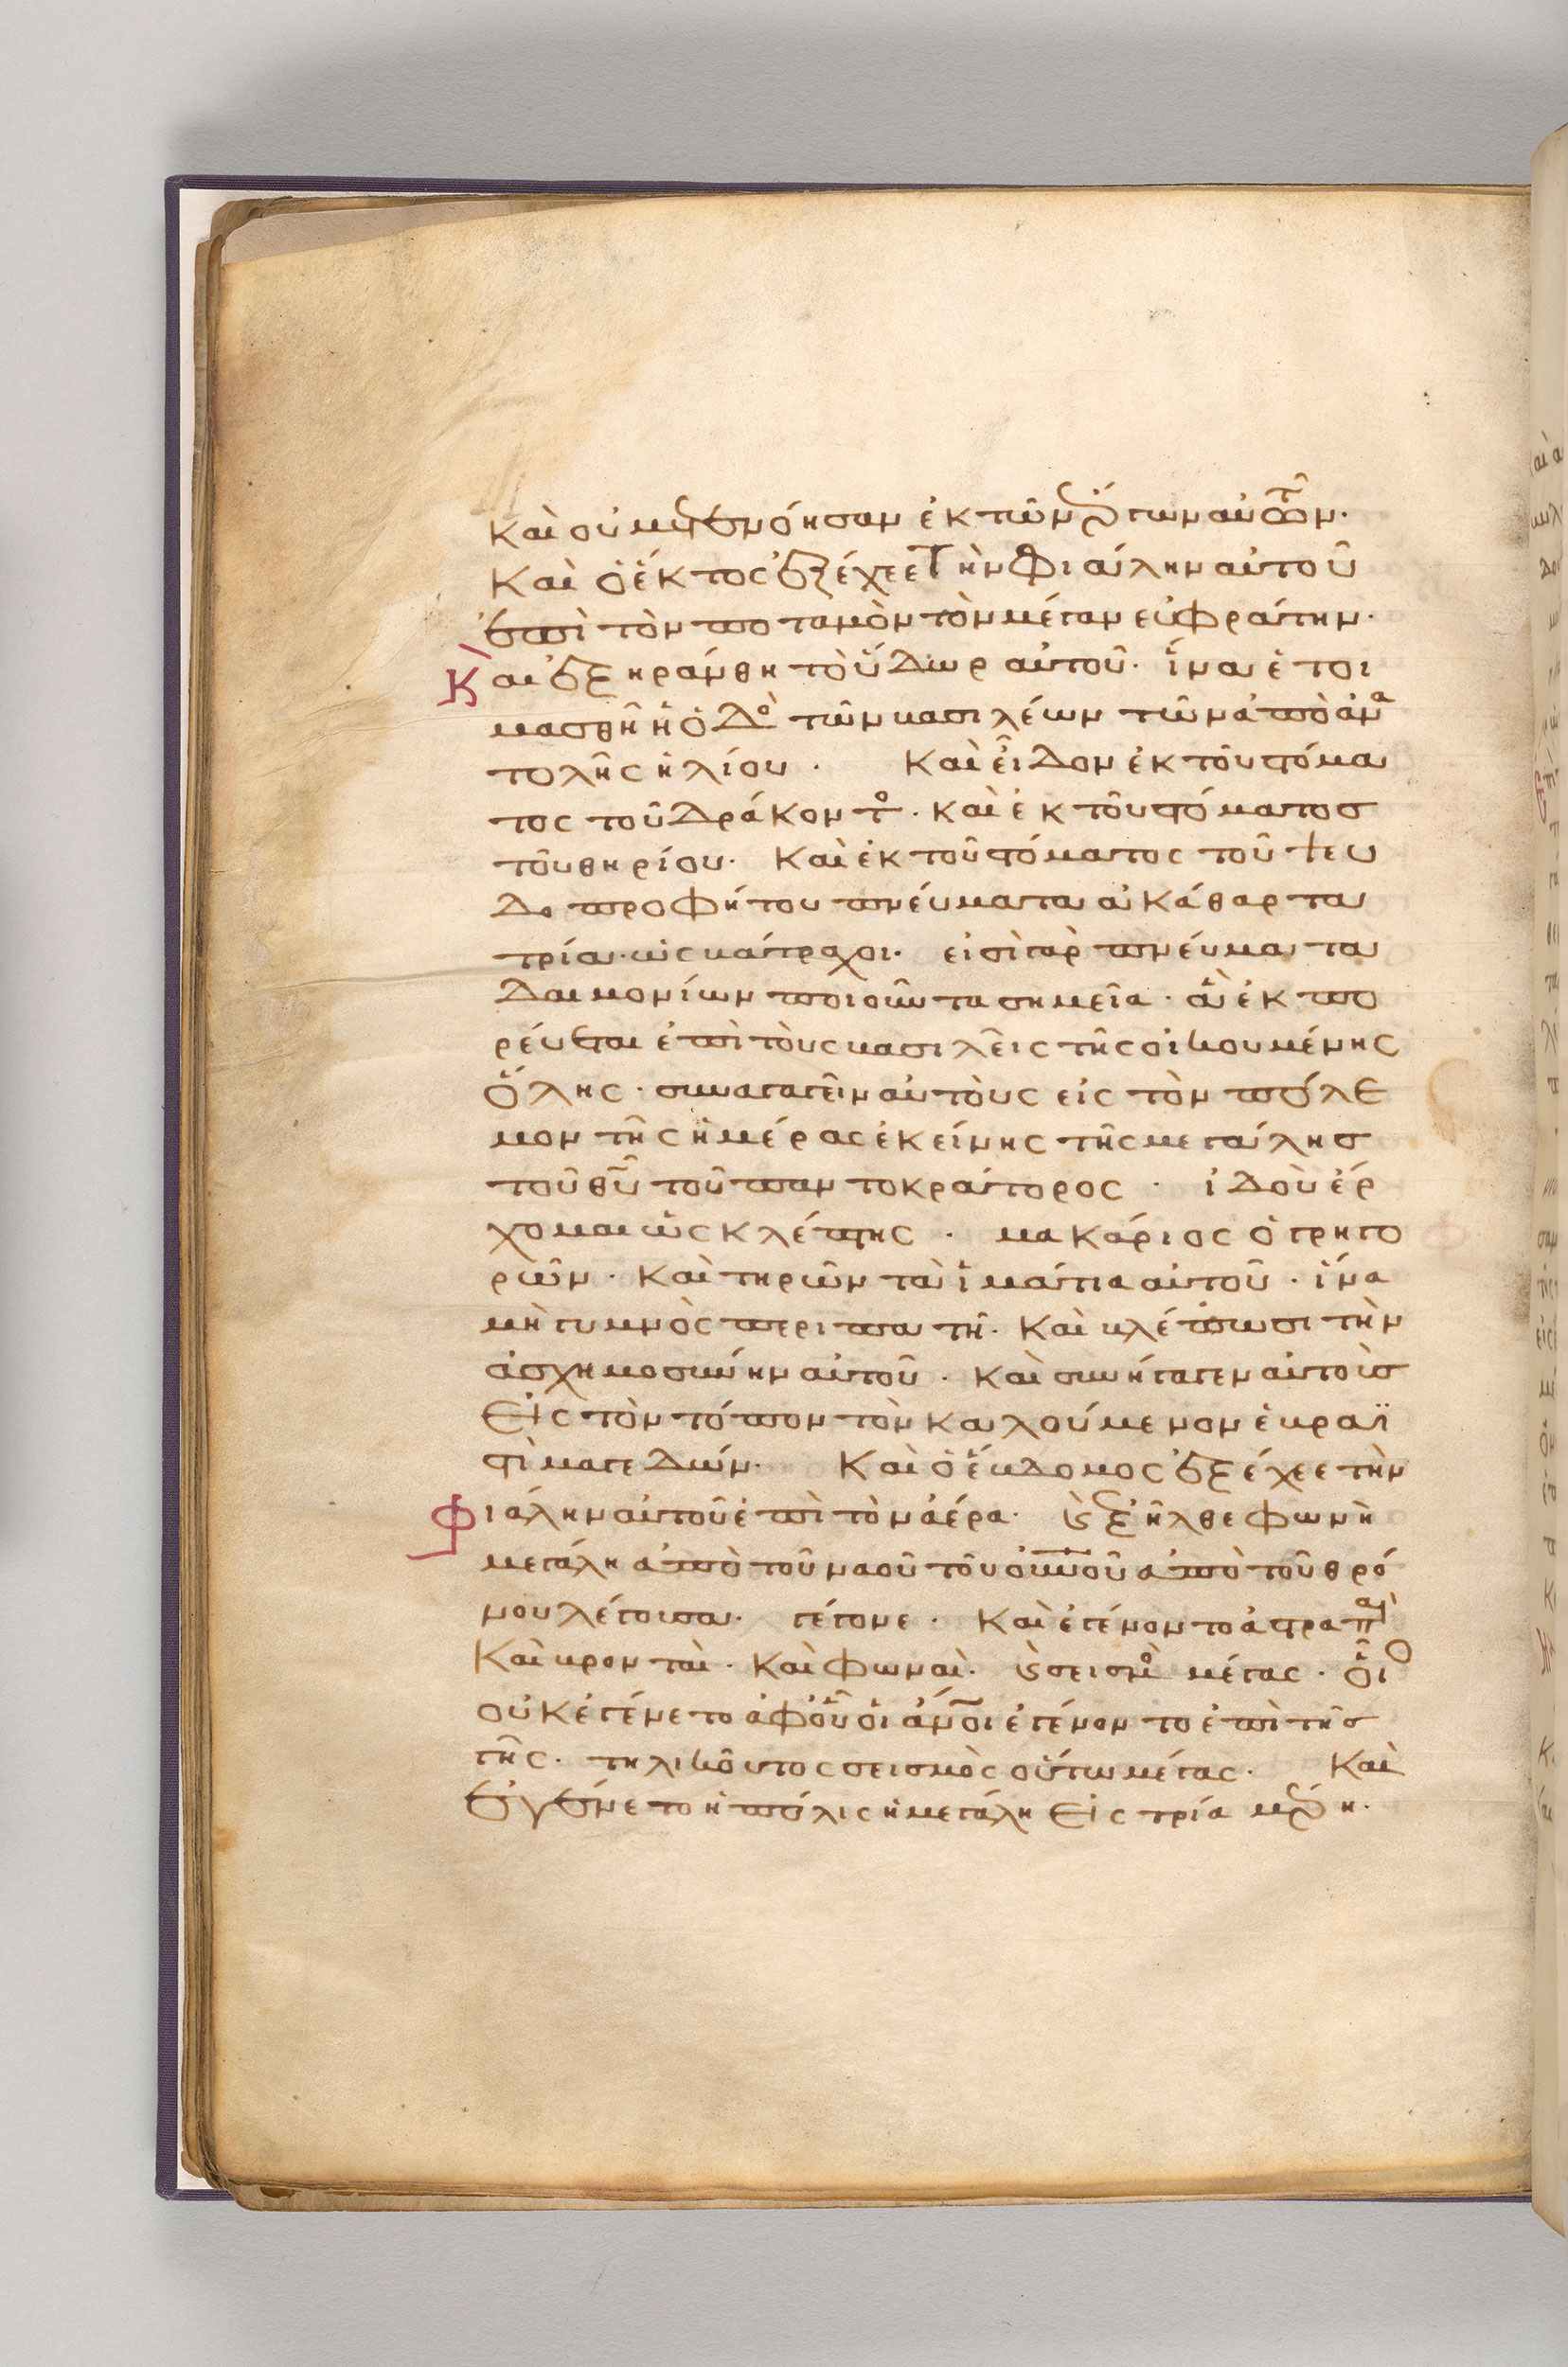 Καὶ οὐ μετενόησαν ἐκ τῶν ἔργων αὐτῶν·
Καὶ ὁ ἕκτος ἐξέχεε τὴν φιάλην αὐτοῦ
ἐπὶ τὸν ποταμὸν τὸν μέγαν εὐφράτην·
Καὶ ἐξηράνθη τὸ ὕδωρ αὐτοῦ· ἵνα ἑτοι
μασθῆ ἡ ὁδὸ τῶν βασιλέων τῶν ἀπὸ ἀνα
τολῆς ἡλίου · Καὶ εἶδον ἐκ τοῦ στόμα
τος τοῦ δράκοντο · καὶ ἐκ τοῦ στόματοσ
τοῦ θηρίου· Καὶ ἐκ τοῦ στόματος τοῦ ψευ
δοπροφήτου πνεύματα ἀκάθαρτα
τρία· ὡς βάτραχοι· εἰσὶ γὰρ πνεύματα
δαιμονίων ποιοῦντα σημεῖα · ἃ ἐκπο
ρεύεται ἐπὶ τοὺς βασιλεῖς τῆς οἰκουμένης
ὅλης · συναγαγεῖν αὐτοὺς εἰς τὸν πόλε
μον τῆς ἡμέρας ἐκείνης τῆς μεγάλησ
τοῦ θυ τοῦ παντοκράτορος · ἰδοὺ ἔρ
χομαι ὡς κλέπτης · μακάριος ὁ γρηγο
ρῶν · Καὶ τηρῶν τὰ ἱμάτια αὐτοῦ · ἵνα
μὴ γυμνὸς περιπατῆ· Καὶ βλέπωσι τὴν
ἀσχημοσύνην αὐτοῦ · Καὶ συνήγαγεν αὐτοὺσ
Εἰς τὸν τόπον τὸν καλούμενον ἑβραϊ
στὶ μαγεδών· Καὶ ὁ ἕβδομος ἐξέχεε τὴν
Φιάλην αὐτοῦ ἐπὶ τὸν ἀέρα· ϗ ἐξῆλθε φωνὴ
μεγάλη ἀπὸ τοῦ ναοῦ τοῦ οὐνοῦ ἀπὸ τοῦ θρό
νου λέγουσα· γέγονε · Καὶ ἐγένοντο ἀστραπαὶ
Καὶ βρονταὶ · Καὶ φωναὶ· ϗ σεισμὸ μέγας · οἷο
οὐκ ἐγένετο ἀφ' οὗ οἱ ἄνοι ἐγένοντο ἐπὶ τῆσ
γῆς· τηλικοῦτος σεισμὸς οὕτω μέγας· Καὶ
ἐγένετο ἡ πόλις ἡ μεγάλη Εἰς τρία μέρη·